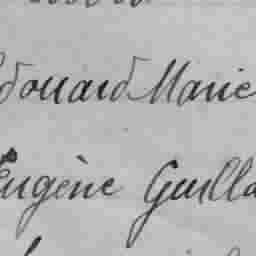 douard Marie
Eugène Guilla